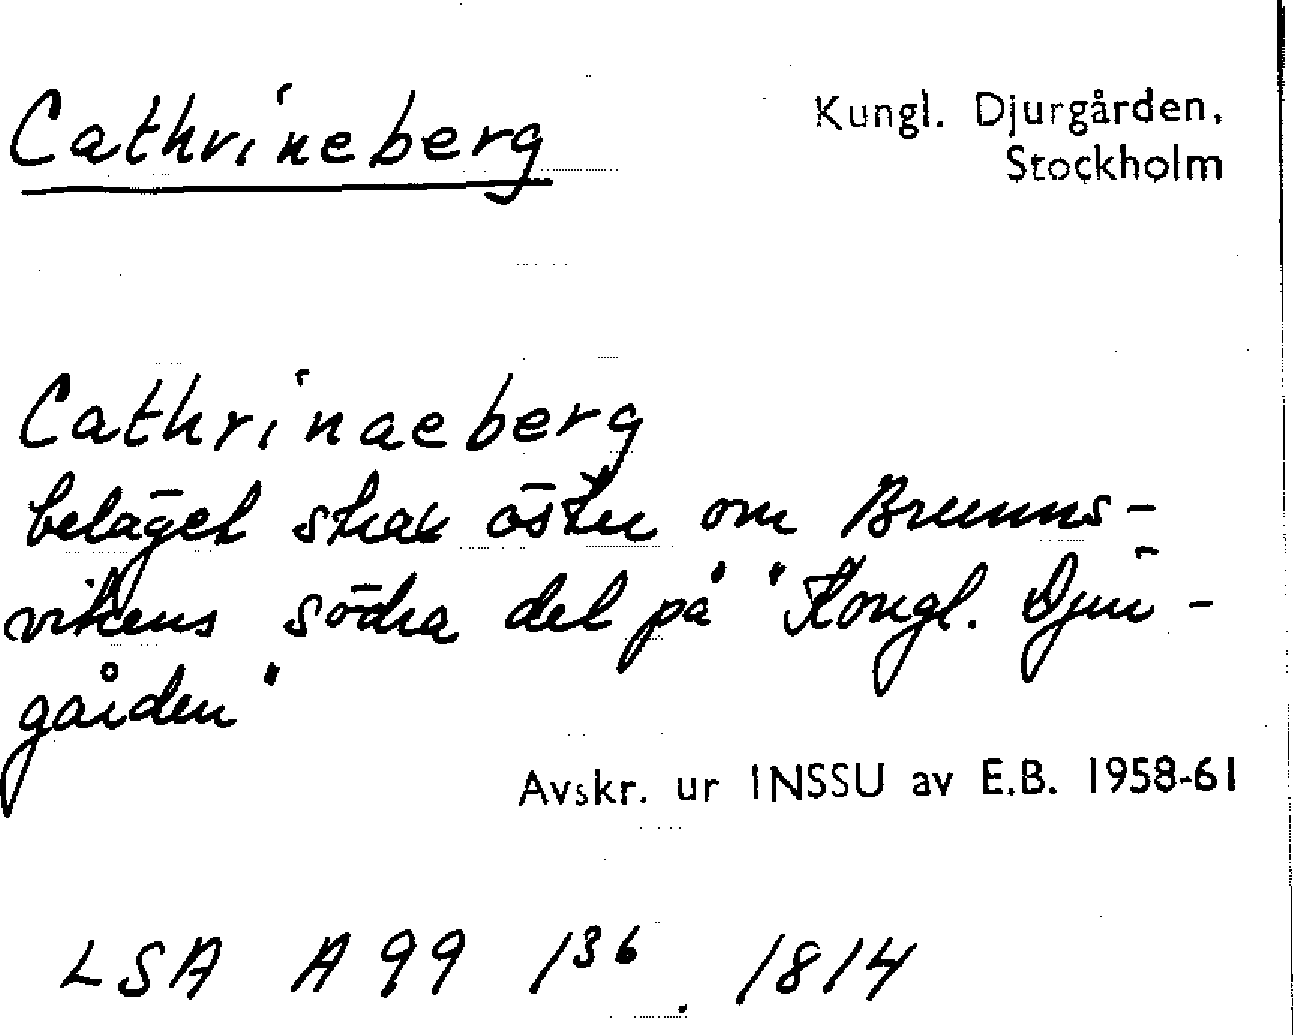 Cathrineberg
Kungl. Djurgården,
Stockholm
Cathrinaeberg
beläget strax öster om Brunns-
vikens södra del på "Kongl. Djur-
gården"
Avskr. ur INSSU av E.B. 1958-61
LSA A 99 1³⁶. 1814